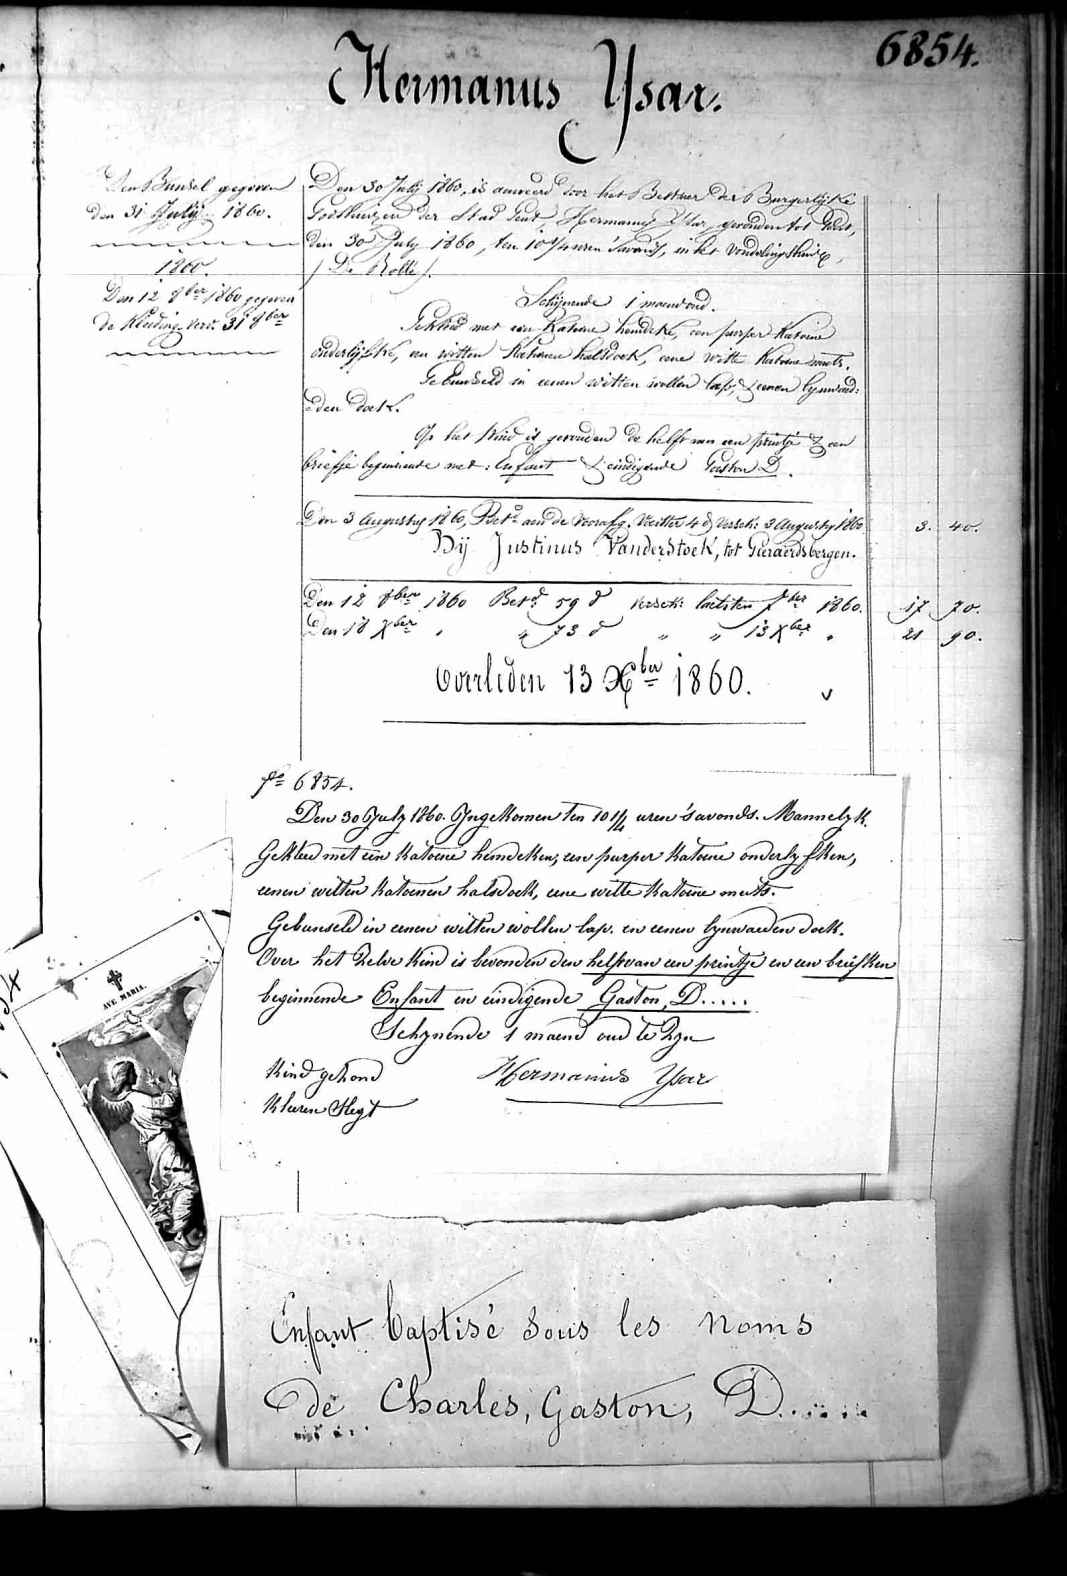 6854.
Hermanus Ysar.
Den Bunsel gegeven
den 31 July 1860.
1860.
Den 12 8ber 1860 gegeven
de Kleeding verv. 31 8ber
Den 30 July 1860, is aenveerd door het Bestuer der Burgerlyke
Godshuizen der Stad Gent Hermanus Ysar, gevonden tot Gent,
den 30 July 1860, ten 10 1/4 uren 's avonds, in het Vondelinghuis,
(De Rolle).
Schynende 1 maend oud.
Gekleed met een Katoene hemdeke, een purper Katoene
onderlyfke, een witten Katoenen halsdoek, eene witte Katoene muts.
Gebunseld in eenen witten wollen lap, & eenen lynwaed:
:eden doek.
Op het Kind is gevonden de helft van een printje & een
briefje beginnende met: Enfant & eindigende Gaston D.
Den 3 Augustus 1860, Bet.d aen de Voorafg. Voedster 4 d versch: 3 Augusty 1860 3. 40.
Bij Justinus Vanderstock, tot Geraerdsbergen.
Den 12 8ber 1860 Bet.d 59 d versch: laetsten 7ber 1860. 17 70.
Den 18 Xber " " 73 d " " 13 Xber " 21 90.
Overleden 13 Xber 1860.
fo 6854.
Den 30 July 1860. Yngekomen ten 10 1/4 uren 's avonds. Mannelyk.
Gekleed met een Katoene hemdeken, een purper Katoene onderlyfken,
eenen witten Katoenen halsdoek, eene witte Katoene muts.
Gebunseld in eenen witten wollen lap. en eenen lynwaeden doek.
Over het Zelve Kind is bevonden den helft van een printje en een briefken
beginnende Enfant en eindigende Gaston, D.....
Schynende 1 maend oud te Zyn
Kind gezond
Hermanus Ysar
Kleeren Slegt
AVE MARIA.
Enfant baptisé sous les noms
de Charles, Gaston, D.....